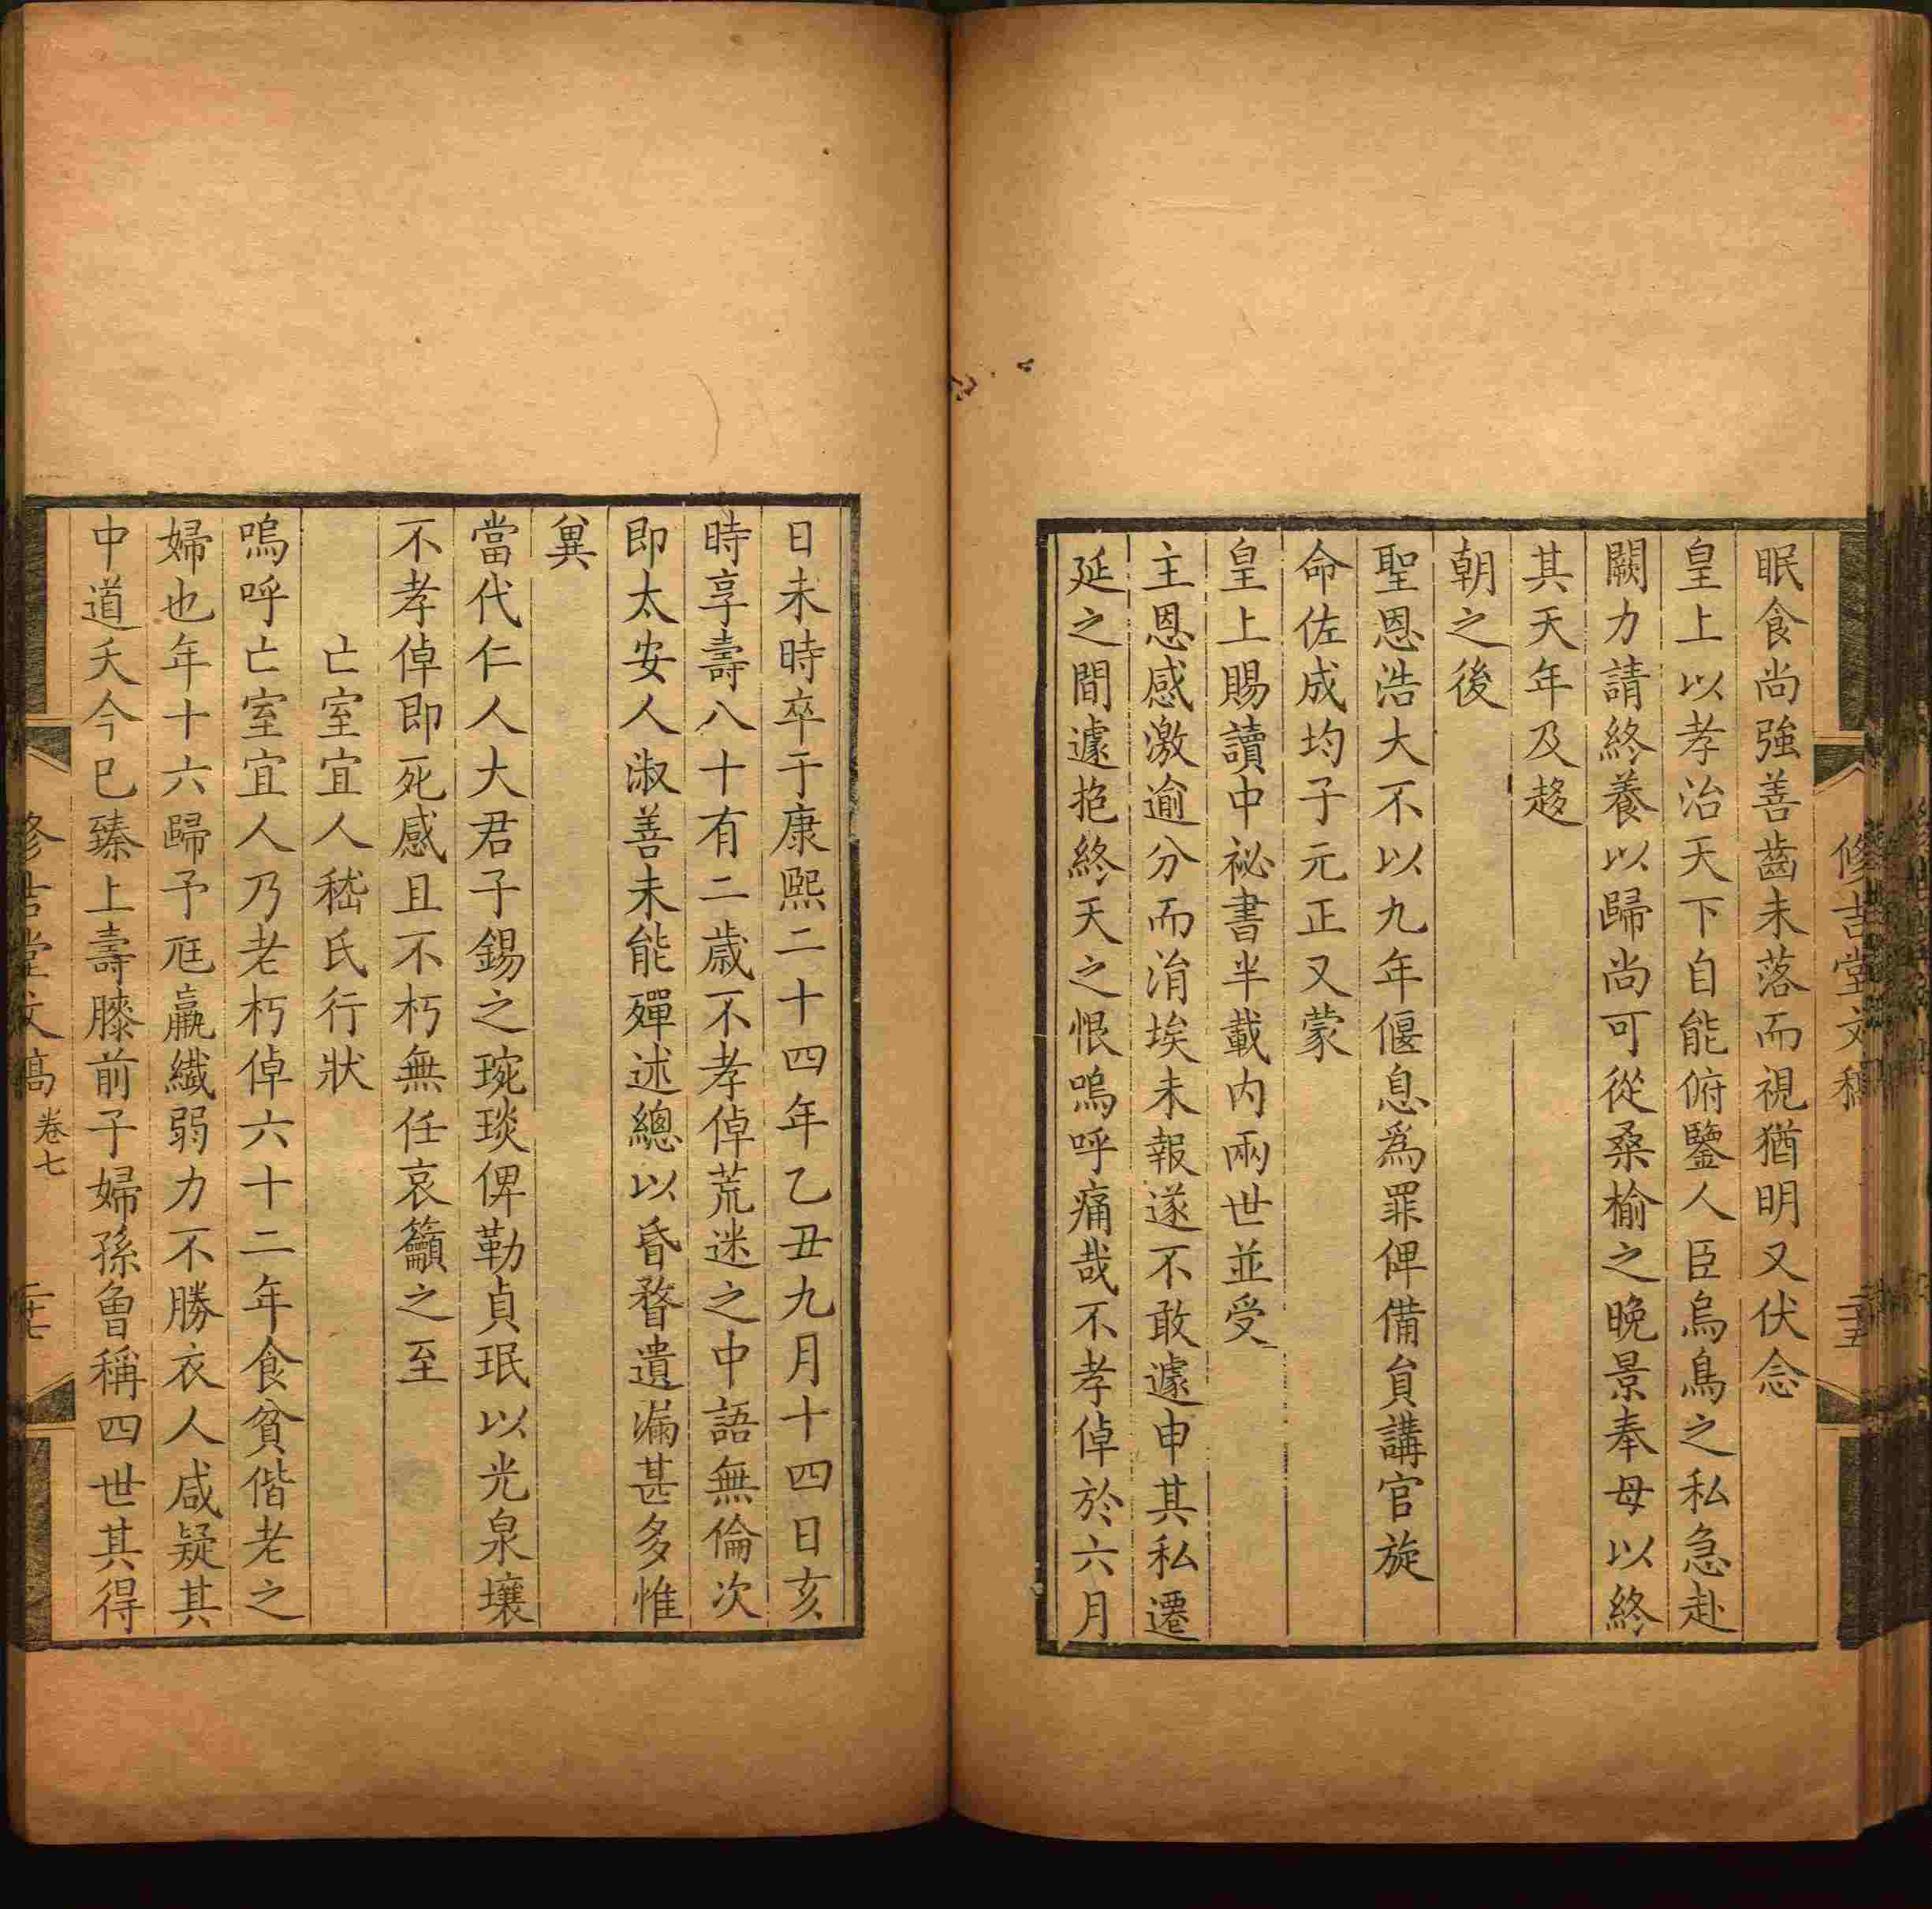 修吉堂文稿
二十五
眠食尚強善齒未落而視猶明又伏念
皇上以孝治天下自能俯鑒人臣烏鳥之私急赴
闕力請終養以歸尚可從桑榆之晚景奉母以終
其天年及趍
朝之後
聖恩浩大不以九年偃息爲罪俾備貟講官旋
命佐成均子元正又蒙
皇上賜讀中祕書半載内兩世並受
主恩感激逾分而涓埃未報遂不敢遽申其私遷
延之間遽抱終天之恨嗚呼痛哉不孝倬於六月
日未時卒于康熙二十四年乙丑九月十四日亥
時享壽八十有二歳不孝倬荒迷之中語無倫次
即太安人淑善未能殫述總以昏瞀遺漏甚多惟
兾
當代仁人大君子錫之琬琰俾勒貞珉以光泉壤
不孝倬即死感且不朽無任哀籲之至
亡室宜人嵇氏行狀
嗚呼亡室宜人乃老朽倬六十二年食貧偕老之
婦也年十六歸予尫羸纎弱力不勝衣人咸疑其
中道夭今已臻上壽膝前子婦孫曾稱四世其得
修吉堂文稿 卷七
二十七